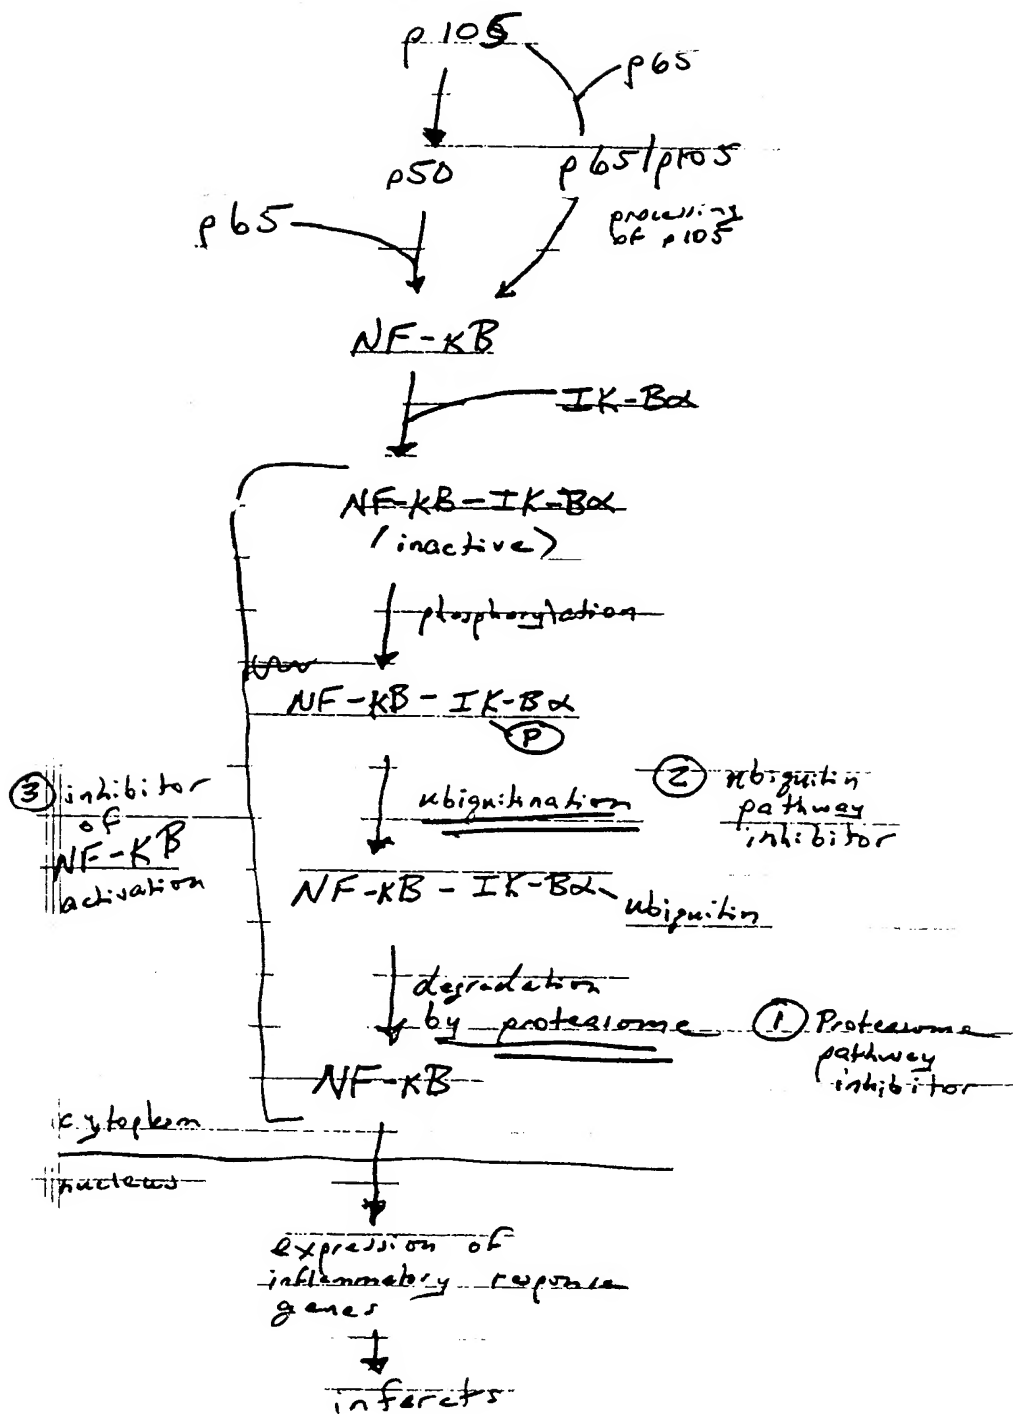 p105
p65
p50
p65/p105
processing
of p105
p65
NF-κB
IK-Bα
NF-κB-IK-Bα
(inactive)
phosphorylation
NF-κB-IK-Bα
P
3 inhibitor
of
NF-κB
activation
ubiquitination
2 ubiquitin
pathway
inhibitor
NF-κB-IK-Bα
ubiquitin
degradation
by proteasome
1 Proteasome
pathway
inhibitor
NF-κB
cytoplasm
nucleus
expression of
inflammatory response
genes
infarcts